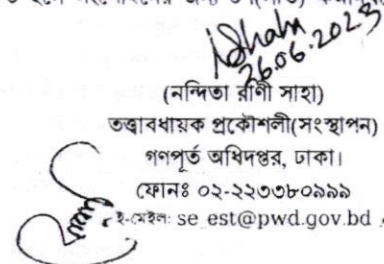 26.06.2023
(নন্দিতা রাণী সাহা)
তত্ত্বাবধায়ক প্রকৌশলী(সংস্থাপন)
গণপূর্ত অধিদপ্তর, ঢাকা।
ফোনঃ ০২-২২৩৩৮০৯৯৯
ই-মেইল: se_est@pwd.gov.bd